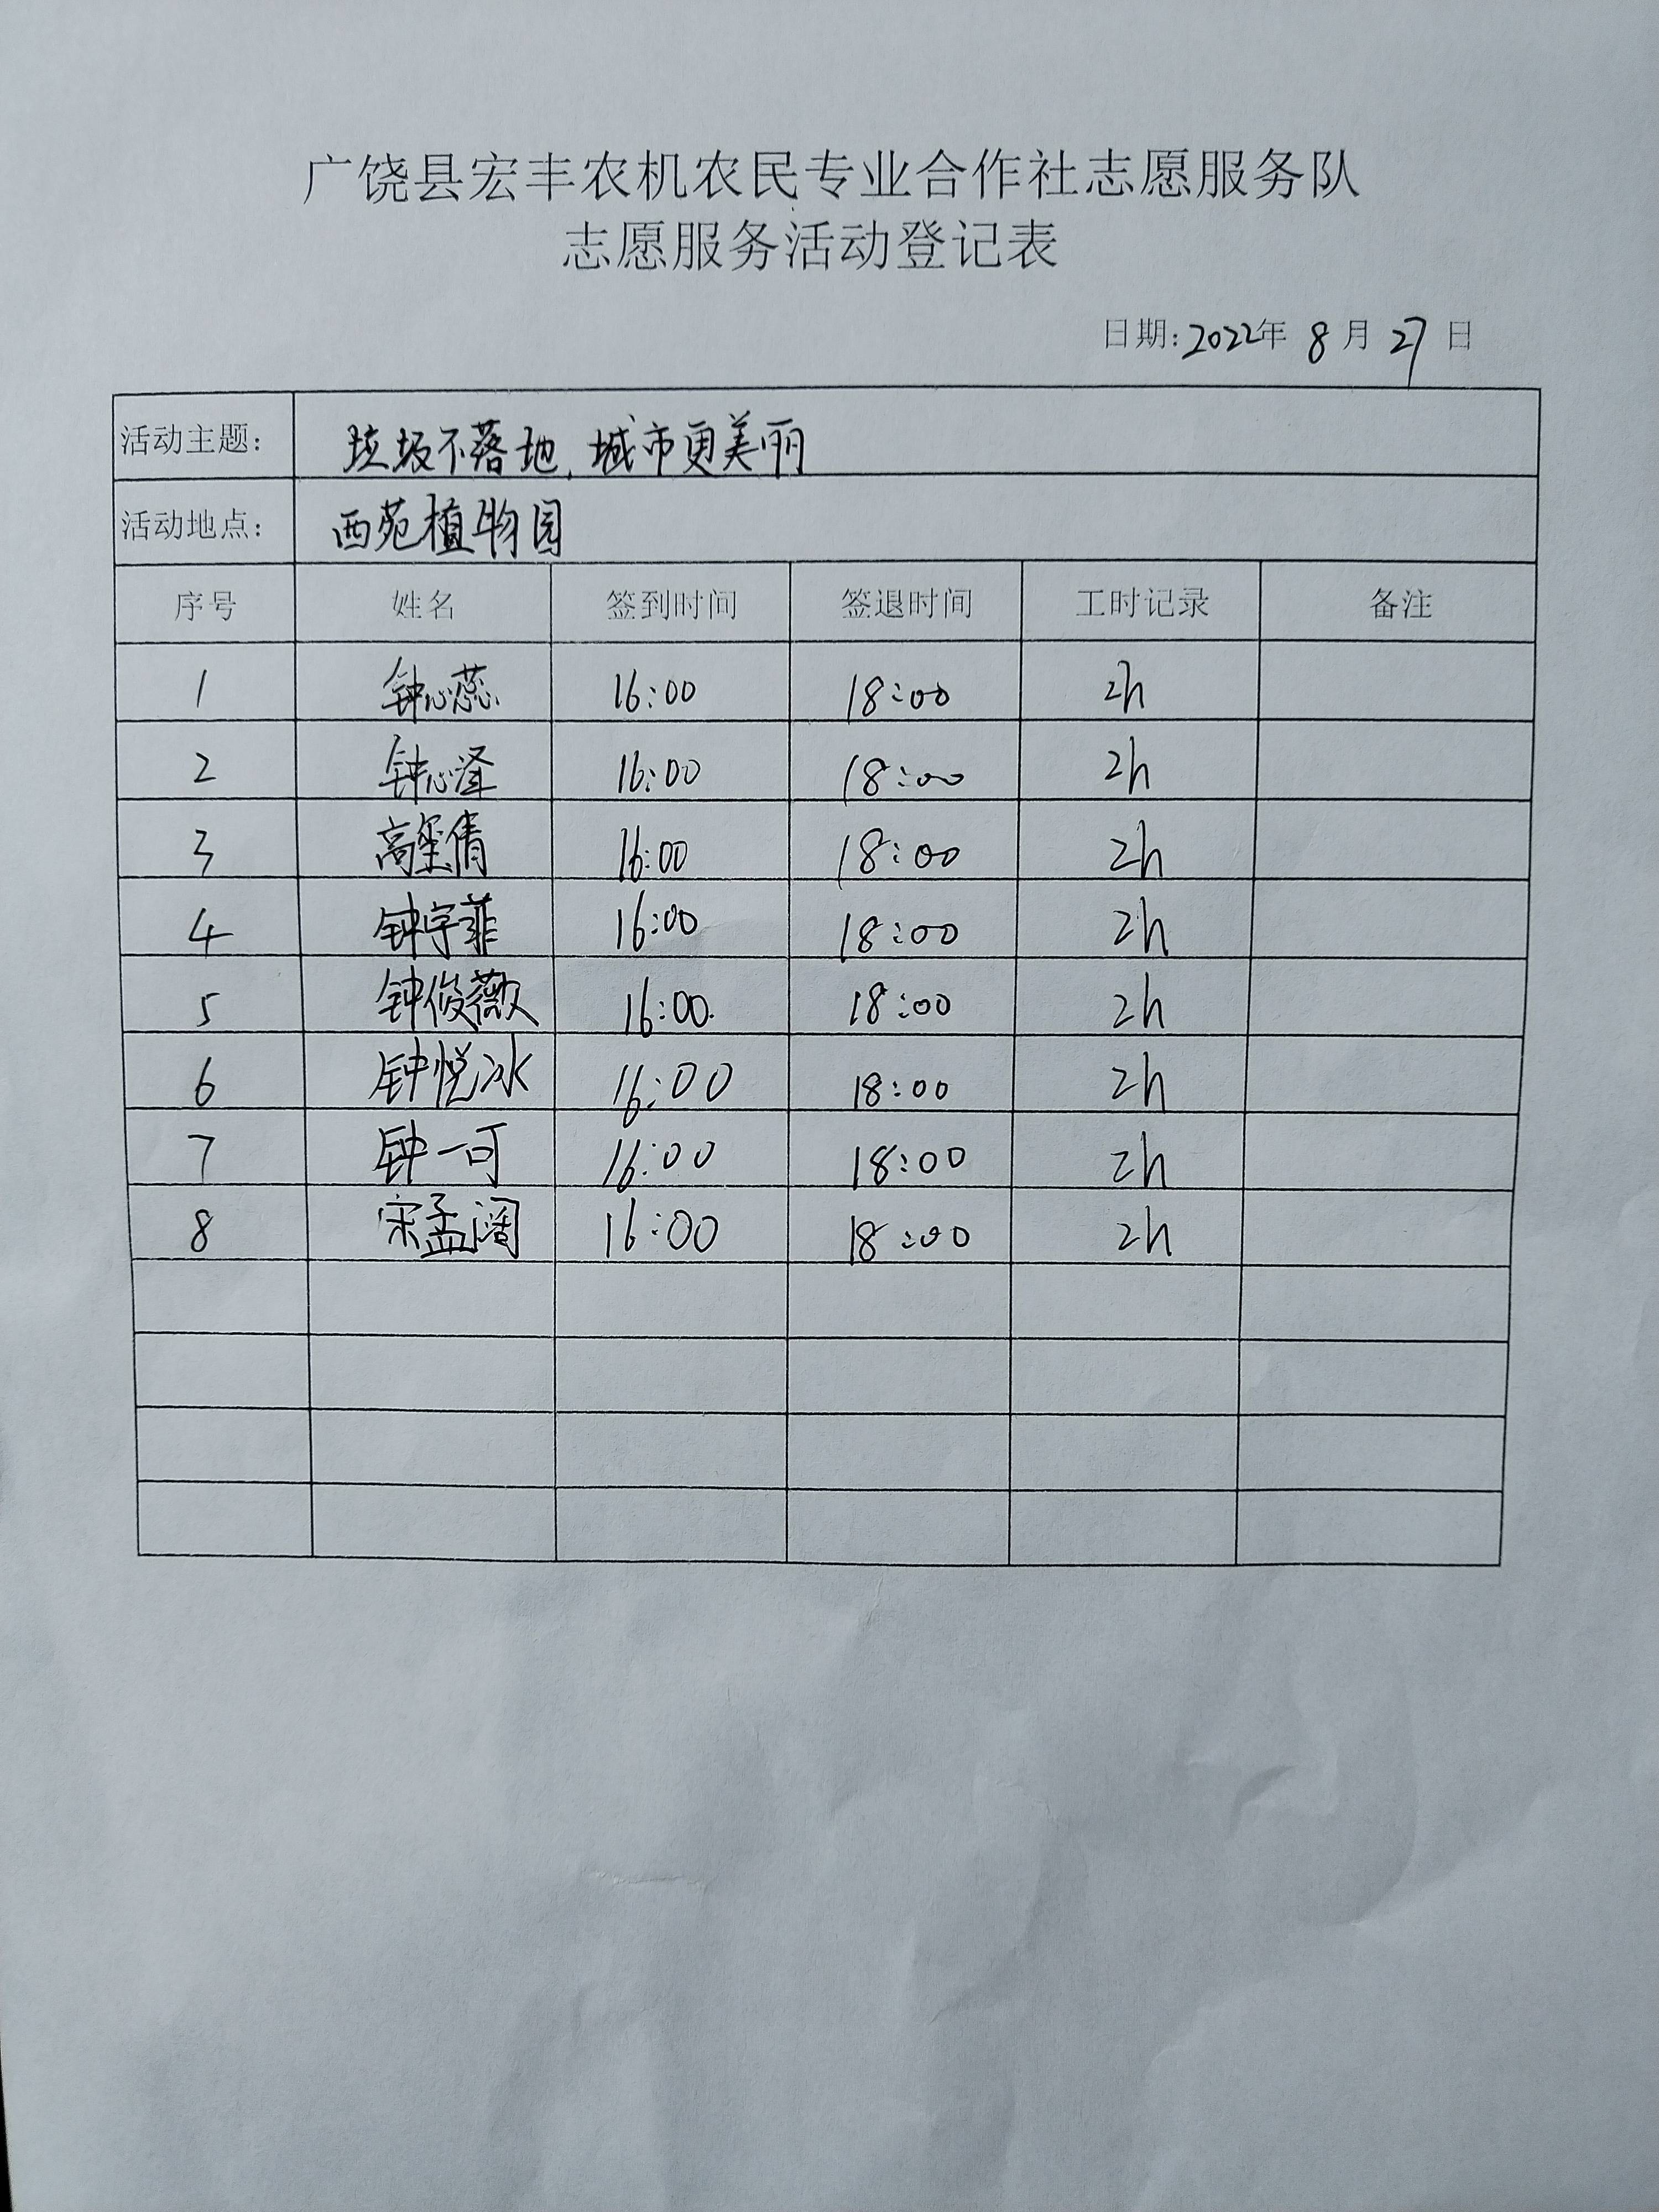 广饶县宏丰农机农民专业合作社志愿服务队
志愿服务活动登记表
日期:2022年 8月 27日
活动主题: 垃圾不落地,城市更美丽
活动地点: 西苑植物园
序号 姓名 签到时间 签退时间 工时记录 备注
1 钟心蕊 16:00 18:00 2h
2 钟心泽 16:00 18:00 2h
3 高玺倩 16:00 18:00 2h
4 钟宇菲 16:00 18:00 2h
5 钟俊薇 16:00 18:00 2h
6 钟悦冰 16:00 18:00 2h
7 钟一可 16:00 18:00 2h
8 宋孟阔 16:00 18:00 2h